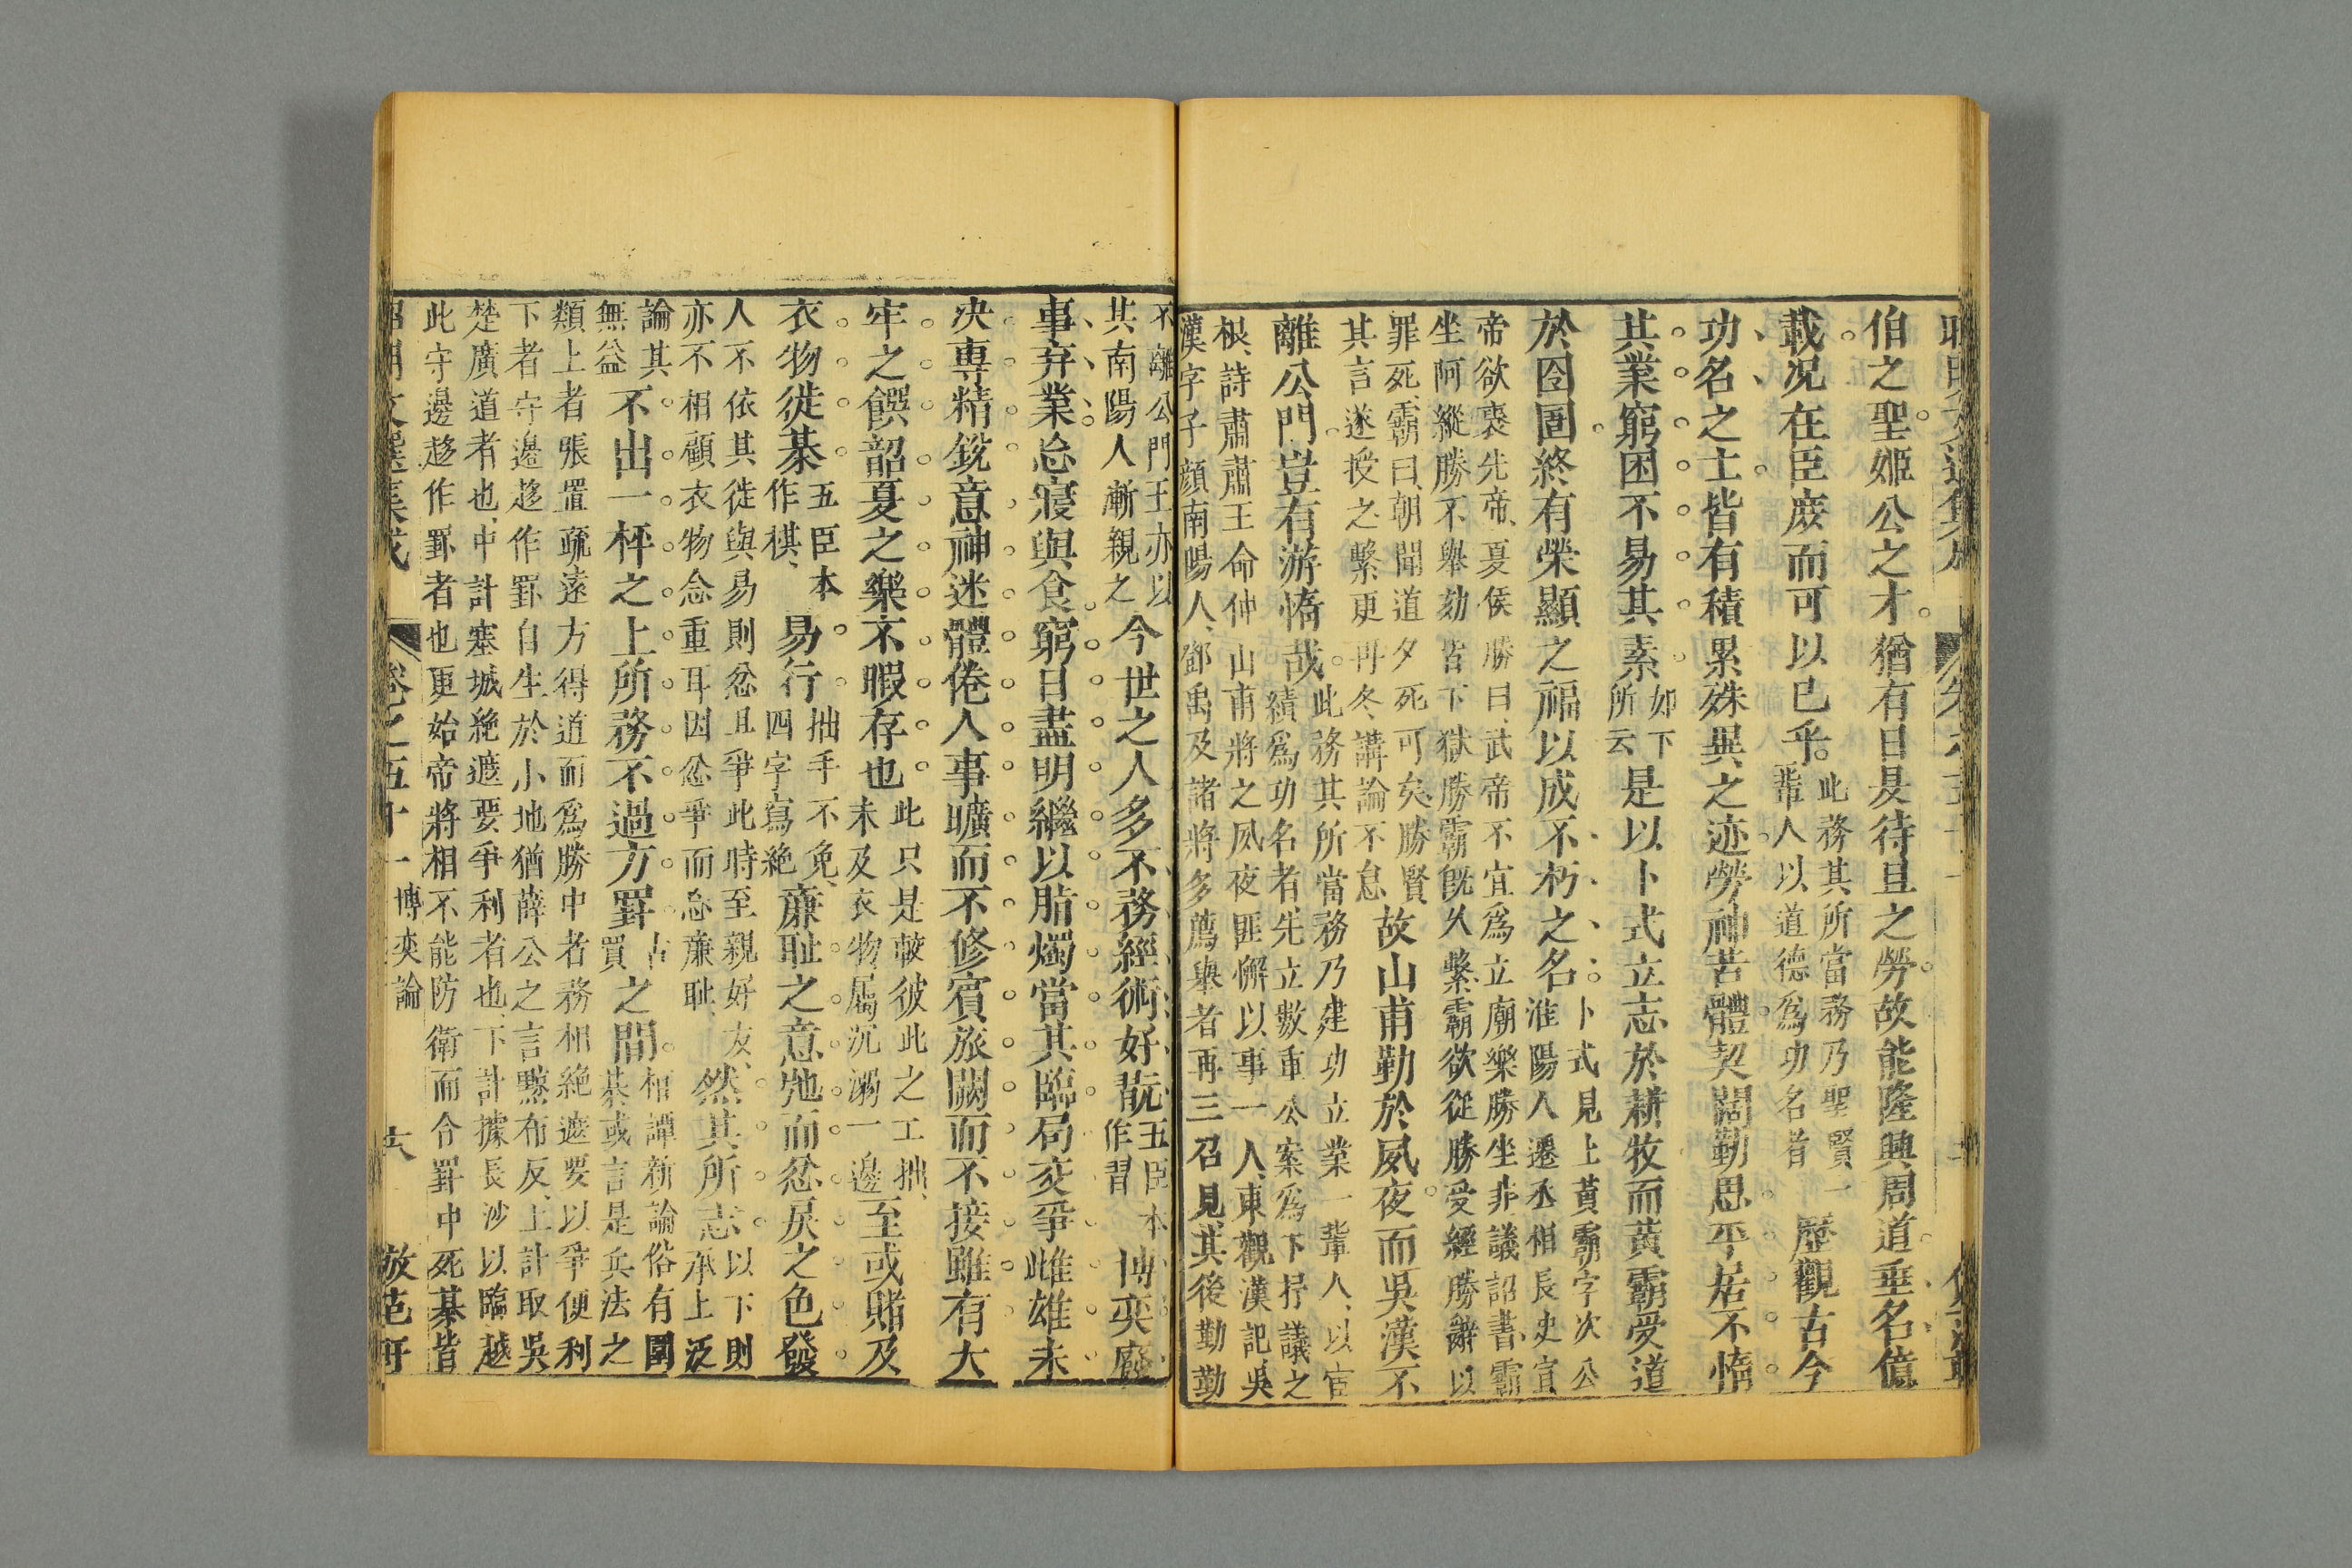 伯之聖姬公之才猶有日昃待旦之勞故能隆興周道垂名億
載况在臣庶而可以已乎此務其所當務乃聖賢一
輩人以道德爲功名者歷觀古今
功名之士皆有積累殊異之迹勞神苦體契闊勤思平居不惰
其業窮困不易其素如下
所云是以卜式立志於耕牧而黃霸受道
於囹圄終有榮顯之福以成不朽之名卜式見上黃霸字次公
淮陽人遷丞相長史宣
帝欲褒先帝夏侯勝曰武帝不宜爲立廟樂勝坐非議詔書霸
坐阿縱勝不舉劾皆下獄勝霸旣久繫霸欲從勝受經勝辭以
罪死霸曰朝聞道夕死可矣勝賢
其言遂授之繫更再冬講論不怠故山甫勤於夙夜而吳漢不
離公門豈有游惰哉此務其所當務乃建功立業一輩人以宦
績爲功名者先立數重公案爲下抒議之
根詩肅肅王命仲山甫將之夙夜匪懈以事一人東觀漢記吳
漢字子顔南陽人鄧禹及諸將多薦舉者再三召見其後勤勤
不離公門王亦以
其南陽人漸親之今世之人多不務經術好翫五臣本
作習博奕廢
事弃業忘寢與食窮日盡明繼以脂燭當其臨局交爭雌雄未
决專精銳意神迷體倦人事曠而不修賓旅闕而不接雖有大
牢之饌韶夏之樂不暇存也此只是較彼此之工拙
未及衣物屬沉溺一邊至或賭及
衣物徙棊五臣本
作棋易行拙手不免
四字寫絶廉耻之意弛而忿戾之色發
人不依其徙與易則忿且爭此時至親好友
亦不相顧衣物念重耳因忿爭而忘廉耻然其所志以下則
承上泛
論其
無益不出一枰之上所務不過方罫古
買之間桓譚新論俗有圍
棊或言是兵法之
類上者張置疏遠方得道而爲勝中者務相絶遮要以爭便利
下者守邊趍作罫自生於小地猶薛公之言黥布反上計取吳
楚廣道者也中計塞城絶遮要爭利者也下計據長沙以臨越
此守邊趍作罫者也更始帝將相不能防衛而令罫中死棊皆
卷之五十一 博奕論 六